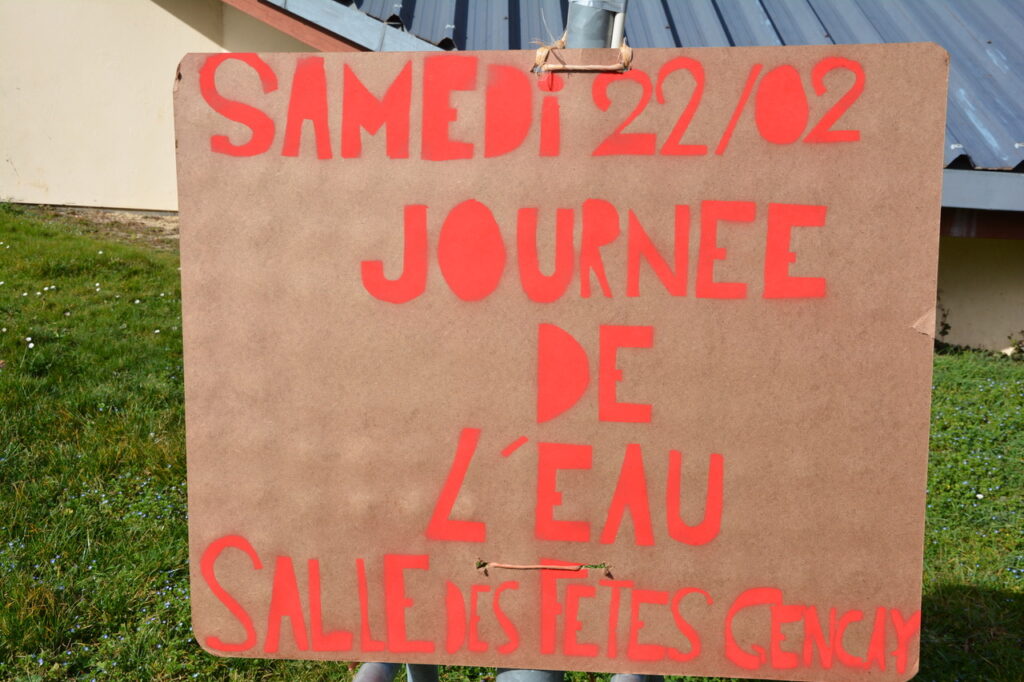 SAMEDi 22/02
JOURNEE
DE
L'EAU
SALLE DES FETES GENCAY